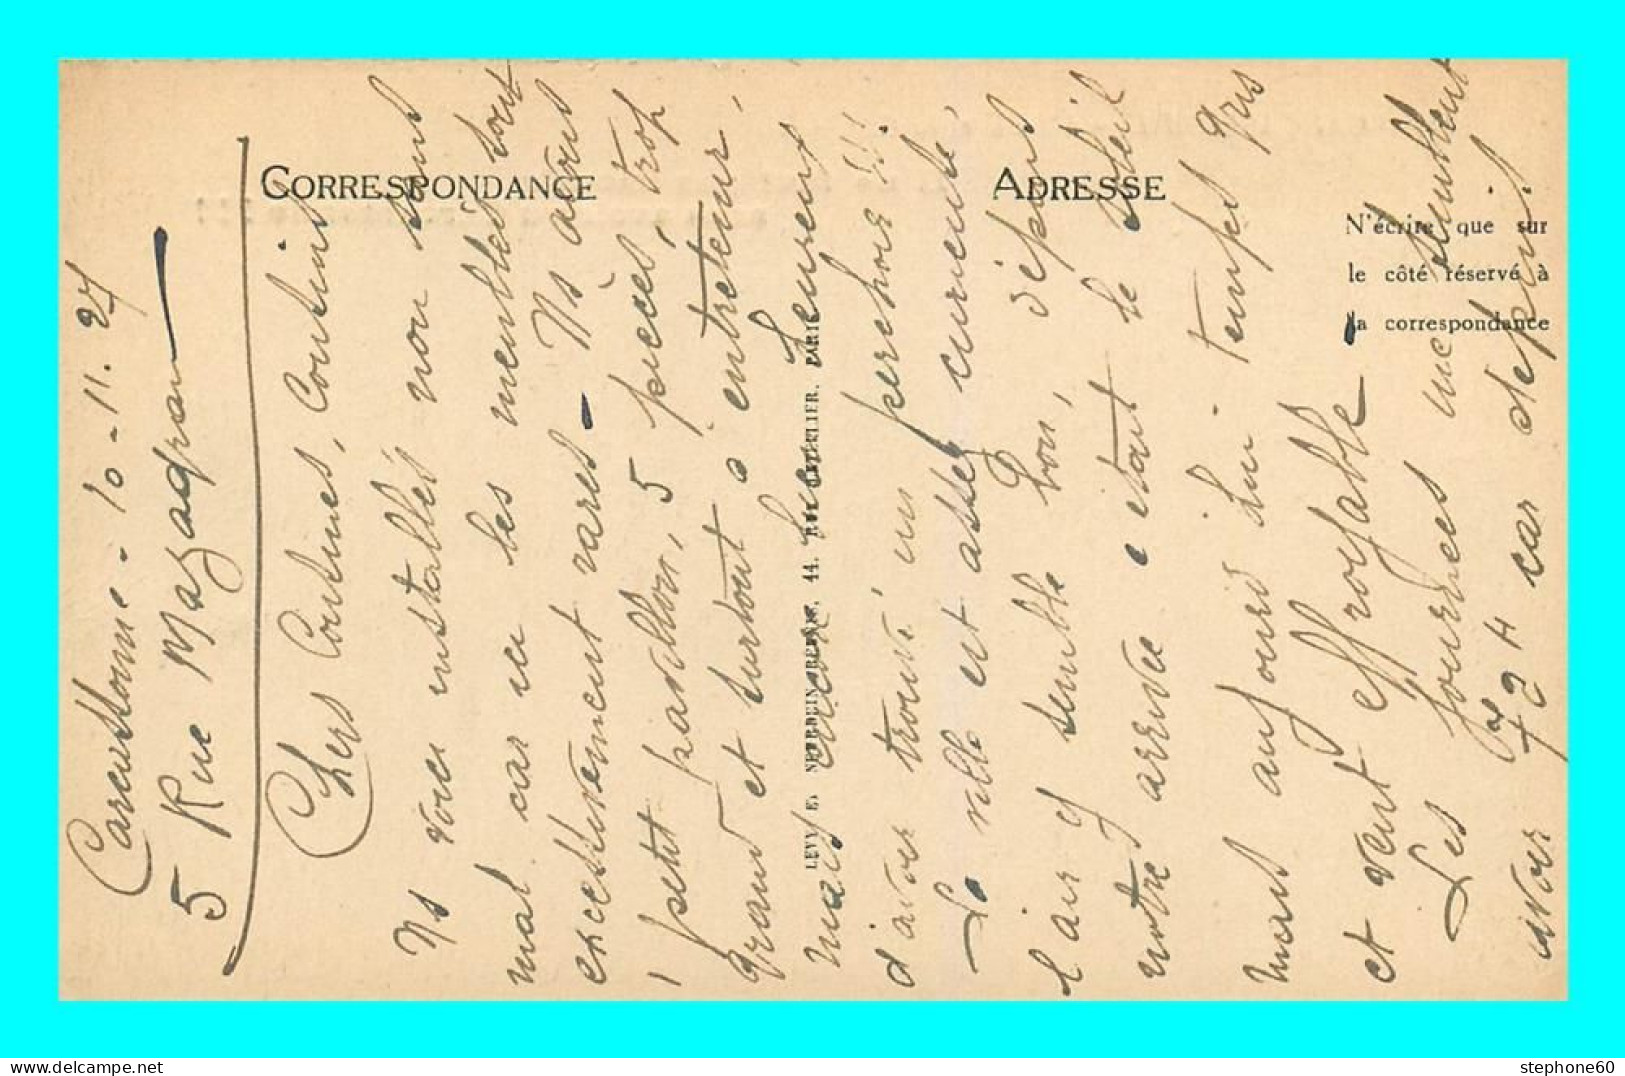 CORRESPONDANCE
ADRESSE
N'écrire que sur
le côté réservé à
la correspondance
LEVY ET NEURDEIN REUNIS, 44, RUE LETELLIER, PARIS
Carcassonne - 10 - 11. 27
5 Rue Mazagran
Chers Cousines, Cousins
Ns voici installés non sans
mal car ici les meublés sont
excessivement rares - Ns avons
1 petit pavillon, 5 pièces, trop
grand et surtout à entretenir,
mais encore bien heureux
d'avoir trouvé un perchoir !!!
La ville est assez curieuse,
l'air y semble bon, depuis
notre arrivée c'était le soleil
mais aujourd'hui - temps gris
et vent effroyable
Les journées me semblent
avoir 72 H car depuis
stephone60